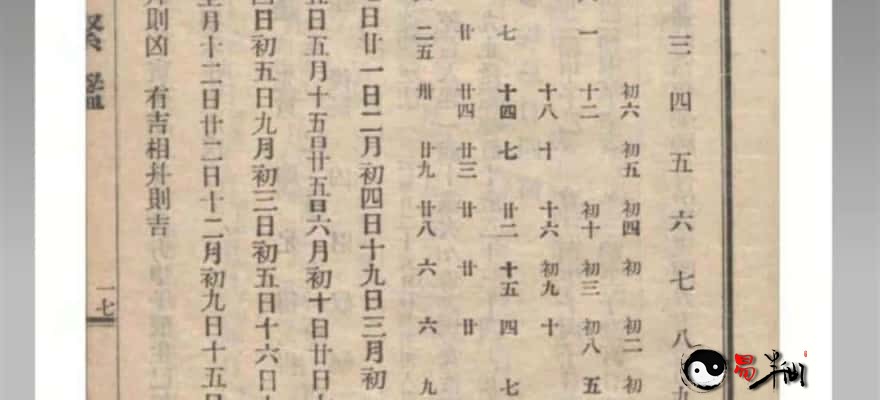 三四五六七八九
初六初五初四初初二初
十二初十初三初八五
十八十十六初九十
七十四七廿二十五四七
廿廿四廿三廿廿廿
二五卅廿九廿八六六九
日廿一日二月初四日十九日三月初
五日五月十五日廿五日六月初十日廿日
四日初五日九月初三日初五日十六日
月十二日廿二日十二月初九日十五日
則凶 有吉相幷則吉
鑑
一七
易半仙